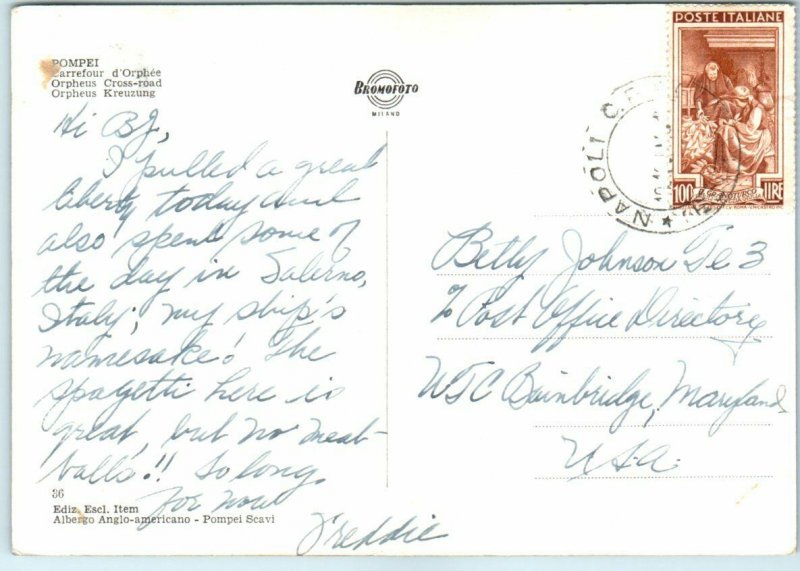 POMPEI
Carrefour d'Orphée
Orpheus Cross-road
Orpheus Kreuzung
BROMOFOTO
MILANO
POSTE ITALIANE
100 LIRE
NAPOLI C.P.
Hi BJ,
I pulled a great
liberty today and
also spent some of
the day in Salerno,
Italy; my ship's
namesake! The
spagetti here is
great, but no meat-
balls!! So long,
for now
Freddie
Betty Johnson Te 3
% Post Office Directory
WTC Bainbridge, Maryland
U.S.A.
36
Ediz. Escl. Item
Albergo Anglo-americano - Pompei Scavi